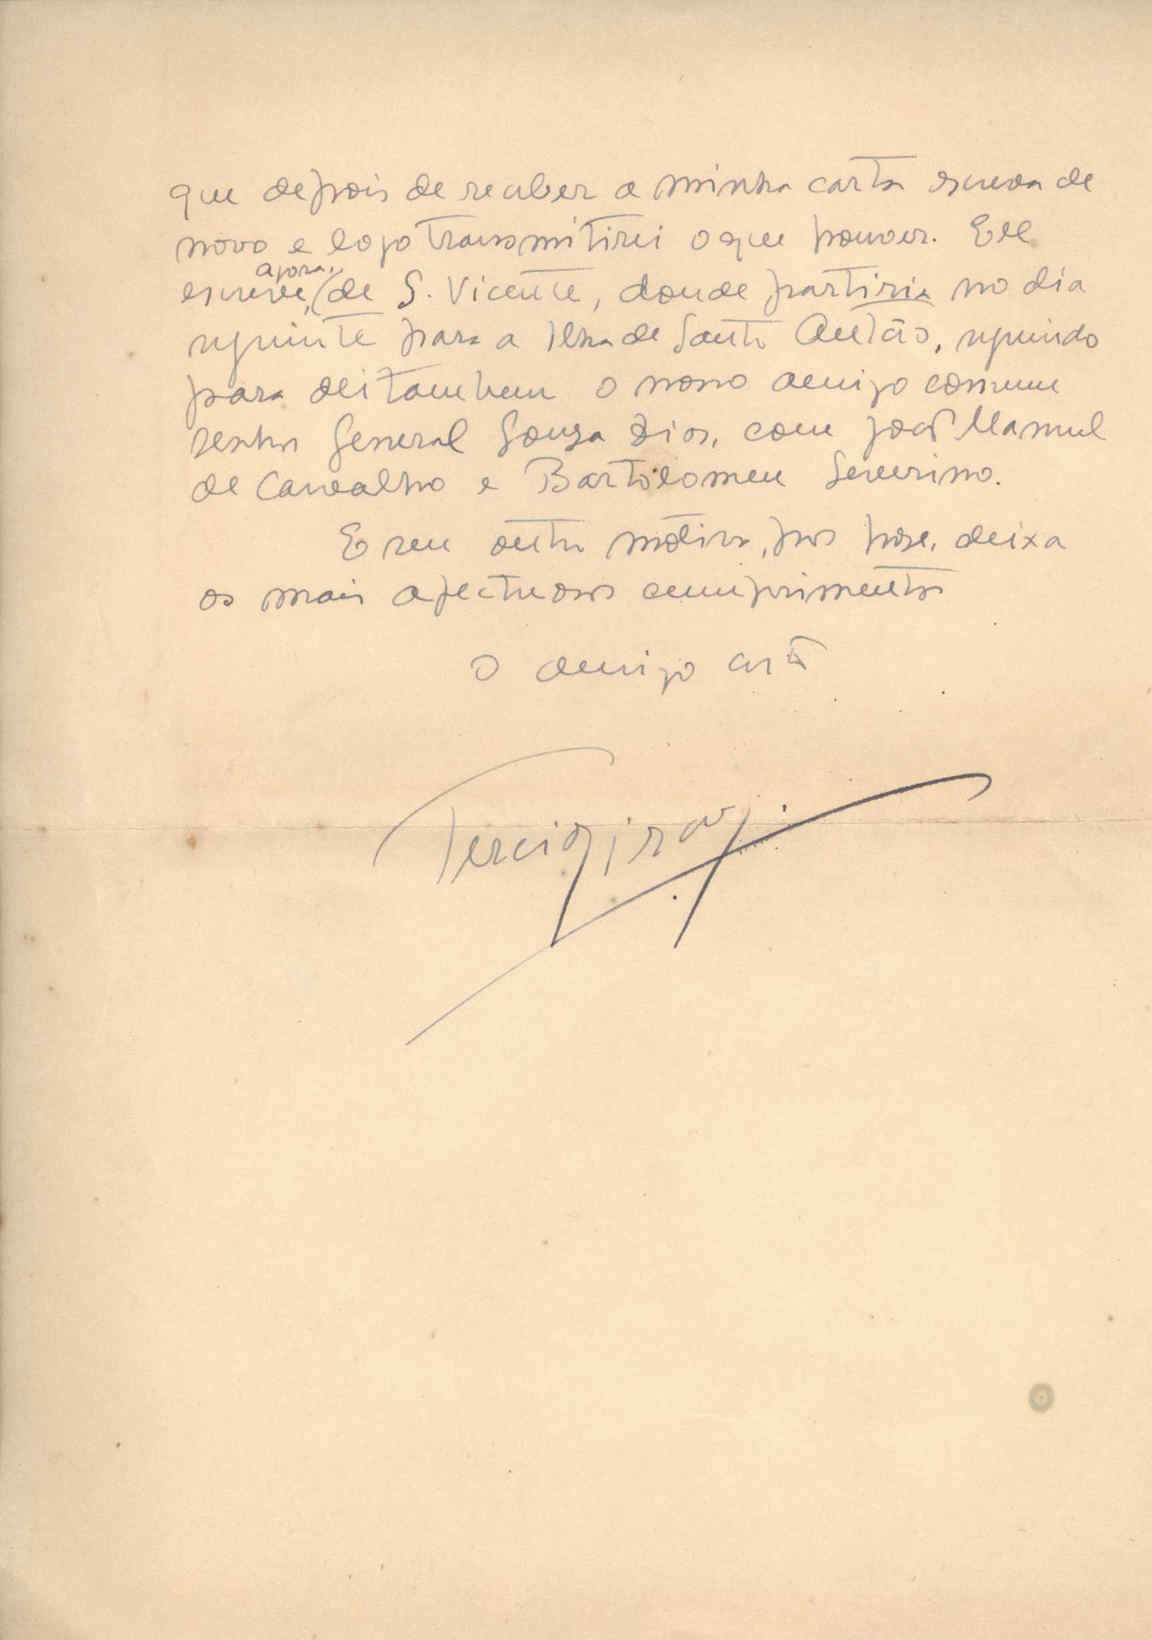 que depois de receber a minha carta escreva de
novo e logo transmitirei o que houver. Elle
escreve, agora, de S. Vicente, donde partiria no dia
seguinte para a Ilha de Santo Antão, seguindo
para ali tambem o nosso amigo comum
senhor General Souza Dias, com João Manuel
de Carvalho e Bartolomeu Severino.
E sem outro motivo, por hoje, deixa
os mais afectuosos cumprimentos
O amigo